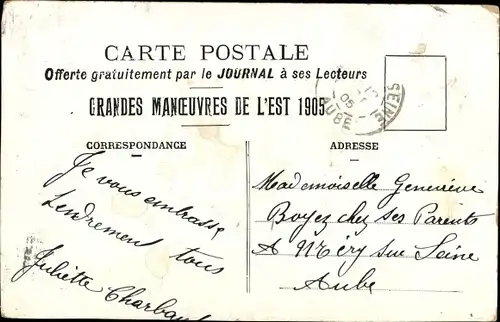 CARTE POSTALE
Offerte gratuitement par le JOURNAL à ses Lecteurs
GRANDES MANŒUVRES DE L'EST 1905
SEINE
05
AUBE
CORRESPONDANCE
ADRESSE
Je vous embrasse
tendrement tous
Juliette
Mademoiselle Geneviève
Boyez chez ses Parents
A Méry sur Seine
Aube